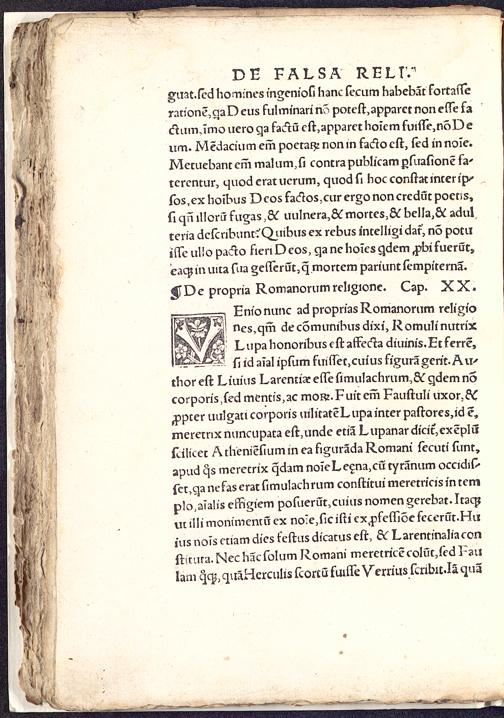 DE FALSA RELI.
guat. sed homines ingeniosi hanc secum habebãt fortasse
rationẽ, qa Deus fulminari nõ potest, apparet non esse fa
ctum, imo uero qa factũ est, apparet hoĩem fuisse, nõ De
um. Mẽdacium em̃ poetaꝝ non in facto est, sed in noĩe.
Metuebant em̃ malum, si contra publicam ꝑsuasionẽ fa-
terentur, quod erat uerum, quod si hoc constat inter ip-
sos, ex hoĩbus Deos factos, cur ergo non credũt poetis,
si qñ illorũ fugas, & uulnera, & mortes, & bella, & adul
teria describunt? Quibus ex rebus intelligi dař, nõ potu
isse ullo pacto fieri Deos, qa ne hoĩes qdem ꝓbi fuerũt,
eaqꝫ in uita sua gesserũt, q̃ mortem pariunt sempiternã.
¶De propria Romanorum religione. Cap. XX.
VEnio nunc ad proprias Romanorum religio
nes, qm̃ de cõmunibus dixi, Romuli nutrix
Lupa honoribus est affecta diuinis. Et ferrẽ,
si id aĩal ipsum fuisset, cuius figurã gerit. Au-
thor est Liuius Larentiæ esse simulachrum, & qdem nõ
corporis, sed mentis, ac moꝝ. Fuit em̃ Faustuli uxor, &
ꝓpter uulgati corporis uilitatẽ Lupa inter pastores, id ẽ,
meretrix nuncupata est, unde etiã Lupanar diciť, exẽplũ
scilicet Atheniẽsium in ea figurãda Romani secuti sunt,
apud q̃s meretrix q̃dam noĩe Leęna, cũ tyrãnum occidis-
set, qa nefas erat simulachrum constitui meretricis in tem
plo, aĩalis effigiem posuerũt, cuius nomen gerebat. Itaqꝫ
ut illi monimentũ ex noĩe, sic isti ex ꝓfessiõe fecerũt. Hu
ius noĩs etiam dies festus dicatus est, & Larentinalia con
stituta. Nec hãc solum Romani meretricẽ colũt, sed Fau
lam q̃qꝫ, quã Herculis scortũ fuisse Verrius scribit. Iã quã